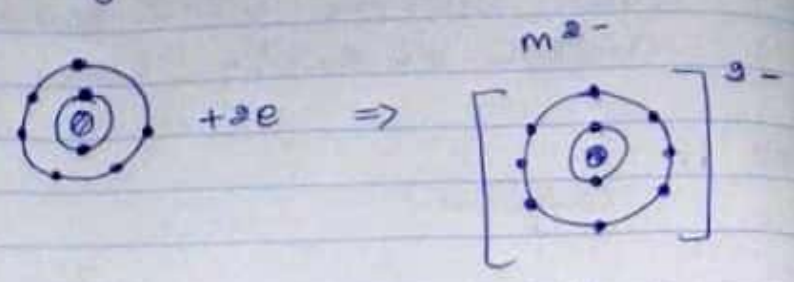 m²⁻
+2e ⇒ 2-